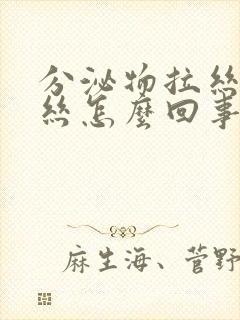 分泌物拉絲
絲怎麼回事
麻生海、菅野